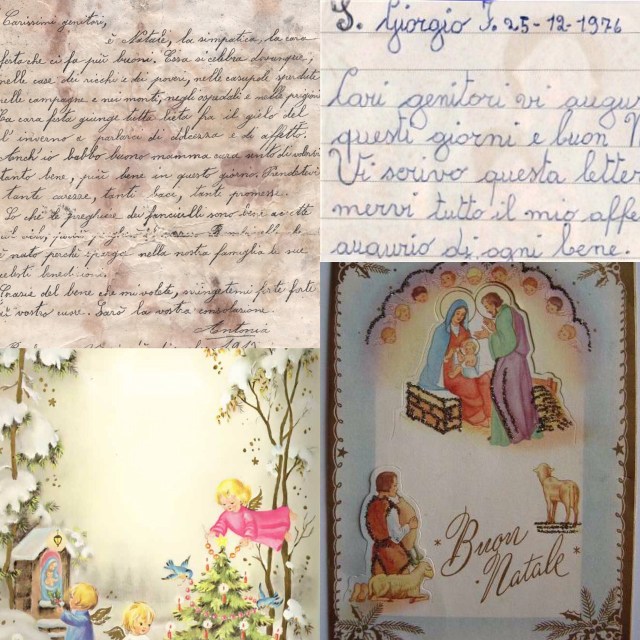 Carissimi genitori,
è Natale, la simpatica, la cara
festa che ci fa più buoni. Essa si celebra dovunque,
nelle case dei ricchi e dei poveri, nelle casupole sperdute
nelle campagne e nei monti, negli ospedali e nelle prigioni
La cara festa giunge tutta lieta fra il gielo del
l'inverno e parlarci di dolcezza e di affetti.
Anch'io babbo buono mamma cara sento di volervi
tanto bene, più bene in questo giorno. Prendetevi
tante carezze, tanti baci, tanti promesse.
che le preghiere dei fanciulli sono bene accette
è nato perchè sperga nella nostra famiglia le sue
celesti benedizioni.
del bene che mi volete, stringetemi forte forte
vostro cuore. Sarò la vostra consolazione.
Antonia
S. Giorgio S. 25-12-1976
Cari genitori vi augu
questi giorni e buon N
Vi scrivo questa letter
mervi tutto il mio affe
augurio di ogni bene.
Buon
Natale